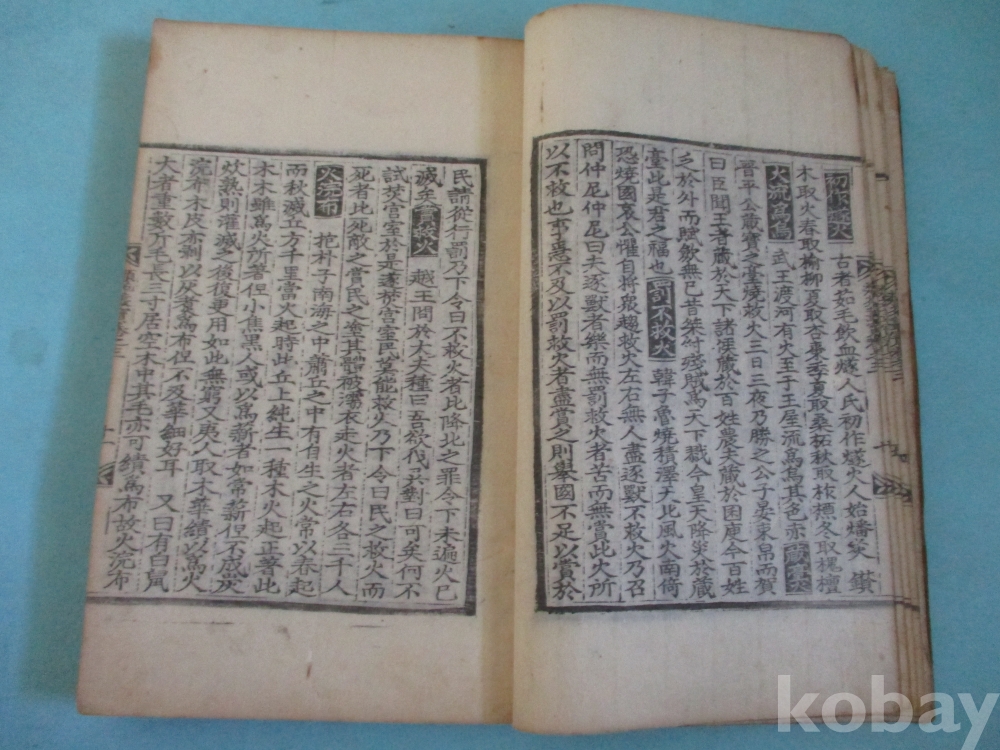 初作燧火 古者如毛飮血燧人氏初作燧火人始燔炙 鑚
木取火春取榆柳夏取杏棗季夏取桑柘秋取柞楢冬取槐檀
火流爲烏 武王渡河有火至于王屋流爲烏其色赤
晉平公藏寶之臺燒救火三日三夜乃勝之公子晏束帛而賀
曰臣聞王者藏於天下諸侯藏於百姓農夫藏於囷庾今百姓
之於外而賦斂無已昔桀紂殘賊爲天下戮今皇天降災於藏
臺此是君之福也 罰不救火 韓子魯燒積澤天北風火南倚
恐燒國哀公懼自將衆趣救火左右無人盡逐獸不救火乃召
問仲尼仲尼曰夫逐獸者樂而無罰救火者苦而無賞此火所
以不救也事急不及以罰救火者盡賞之則擧國不足以賞於
民請從行罰乃下令曰不救火者比降北之罪令下未遍火已
滅矣 賞救火 越王問於大夫種曰吾欲伐吳對曰可矣何不
試焚宮室於是遂焚宮室民莫能救人乃下令曰民之救火而
死者比死敵之賞民之塗其體被濡衣走火者左右各三千人
火浣布 抱朴子南海之中蕭丘之中有自生之火常以春起
而秋滅丘方千里當火起時此丘上純生一種木火起正著此
木木雖爲火所著但小焦黑人或以爲薪者如常薪但不成炭
炊熟則灌滅之後復更用如此無窮又夷人取木華績以爲火
浣布木皮亦剝以灰煮爲布但不及華細好耳 又曰有白鼠
大者重數斤毛長三寸居空木中其毛亦可績爲布故火浣布
kobay